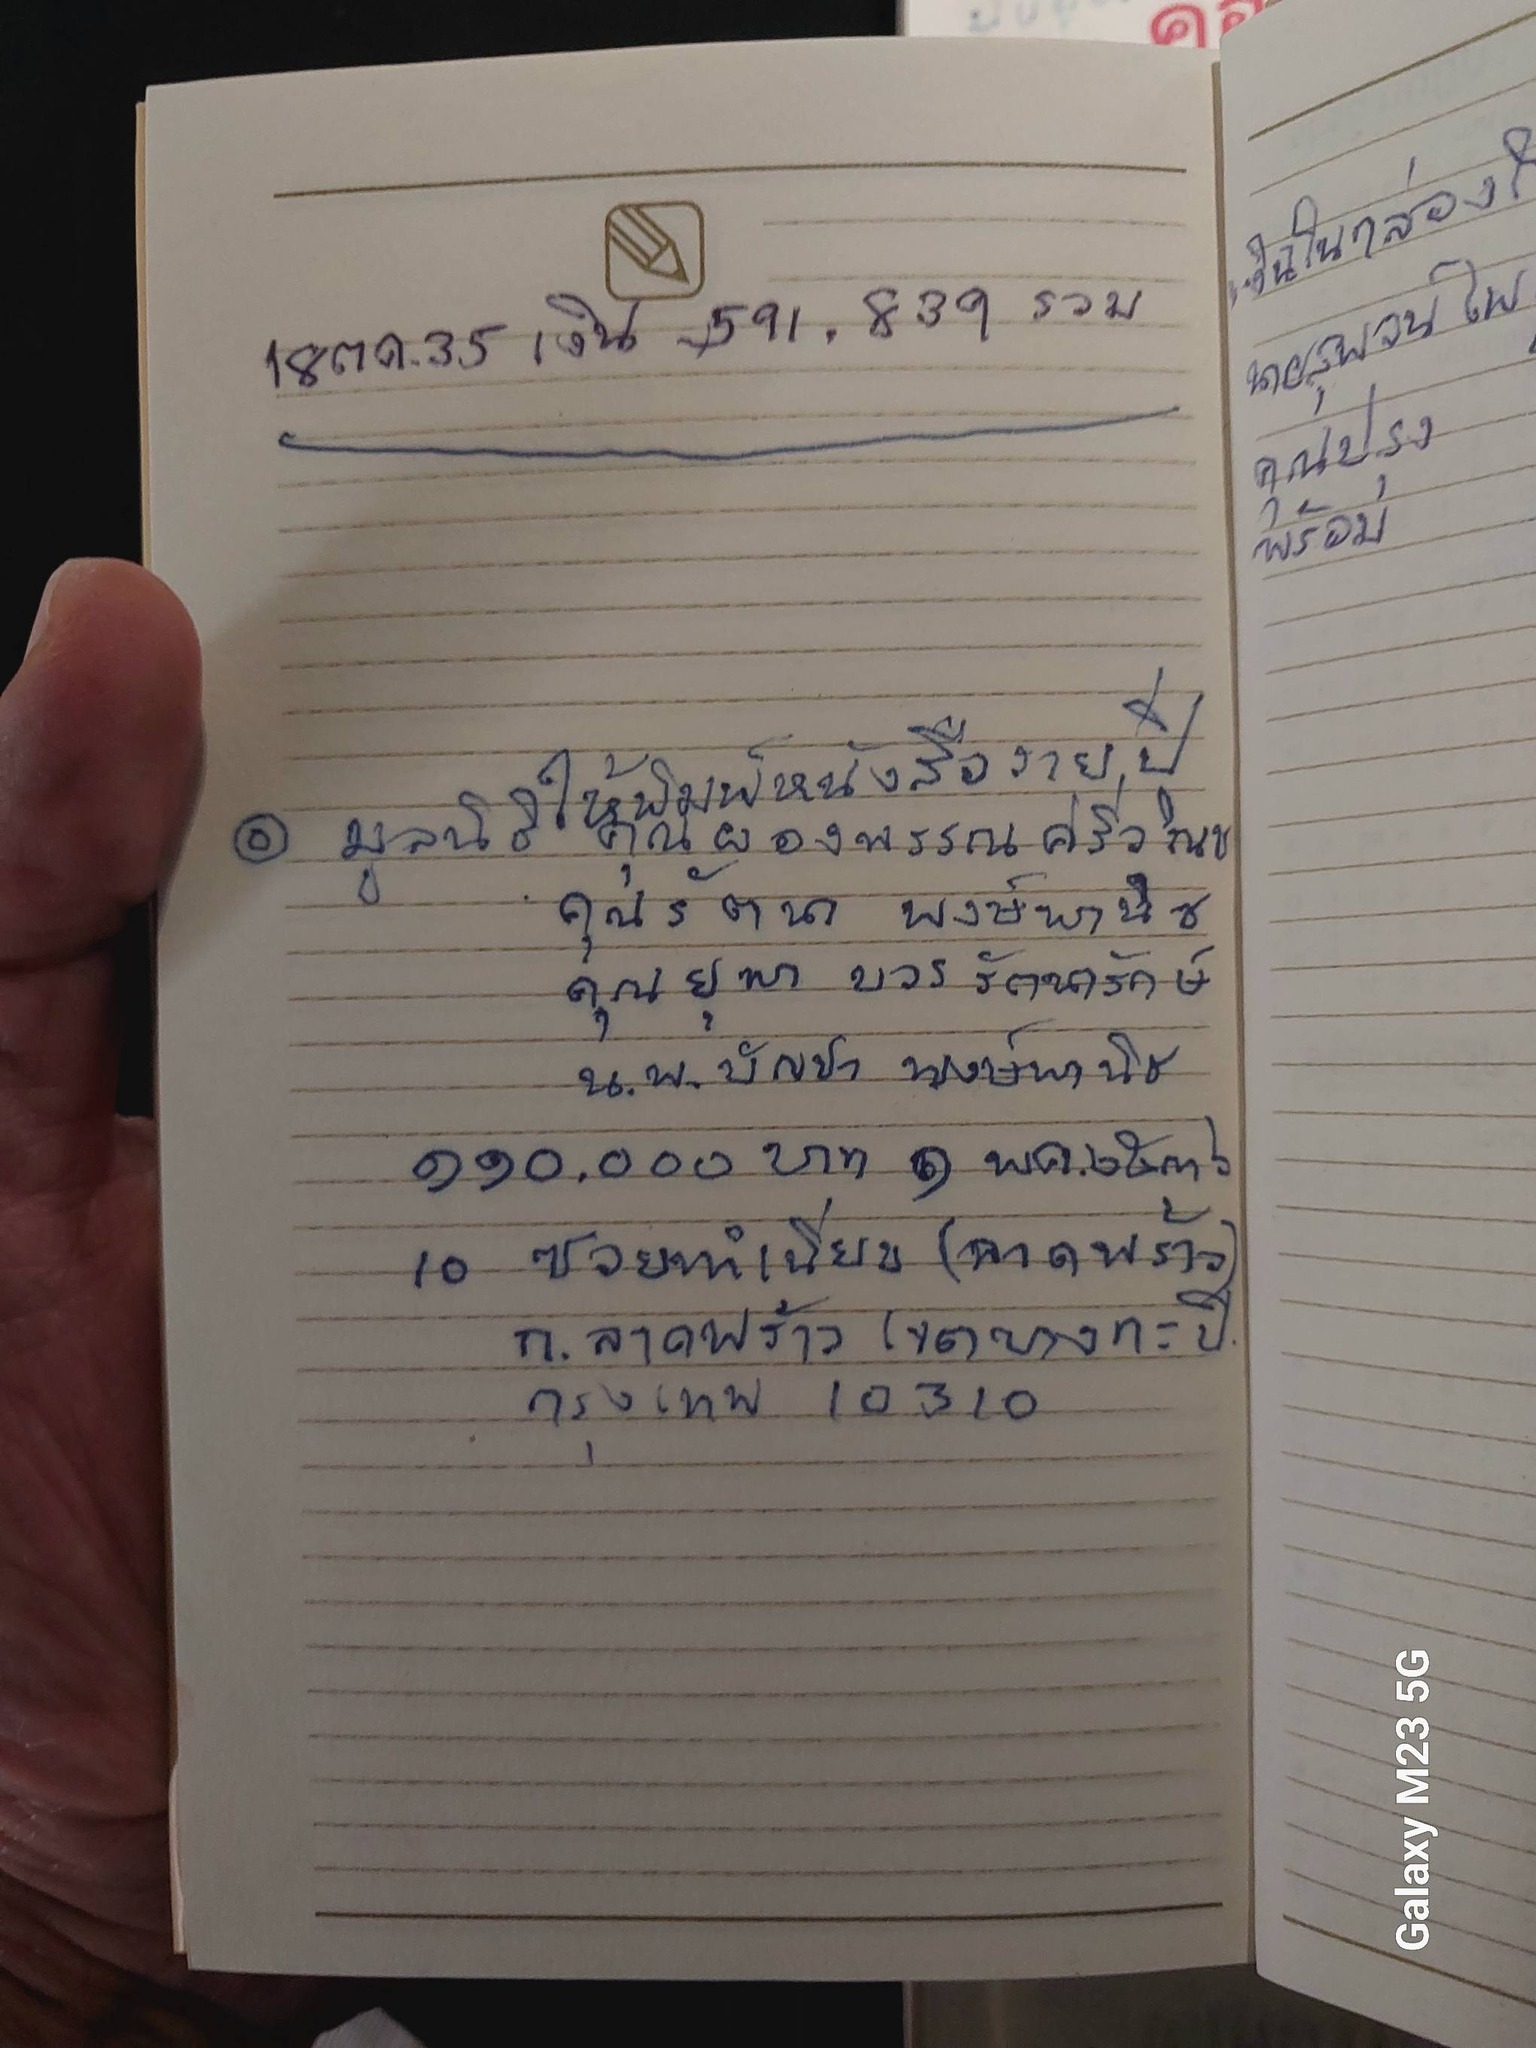 18ตค.35 เงิน 591.839 รวม
ให้พิมพ์หนังสือรายปี
๏ มูลนิธิ คุณผองพรรณ
คุณรัตนา พงษ์พานิช
คุณยุพา บวรรัตนารักษ์
น.พ.บัญชา พงษ์พานิช
๑๑๐.๐๐๐ บาท ๑ พค.๒๕๓๖
10 ซอยทำเนียบ (ลาดพร้าว)
ถ.ลาดพร้าว เขตบางกะปิ.
กรุงเทพ 10310
เงินในกล่อง
คุณปรุง
พร้อม
Galaxy M23 5G